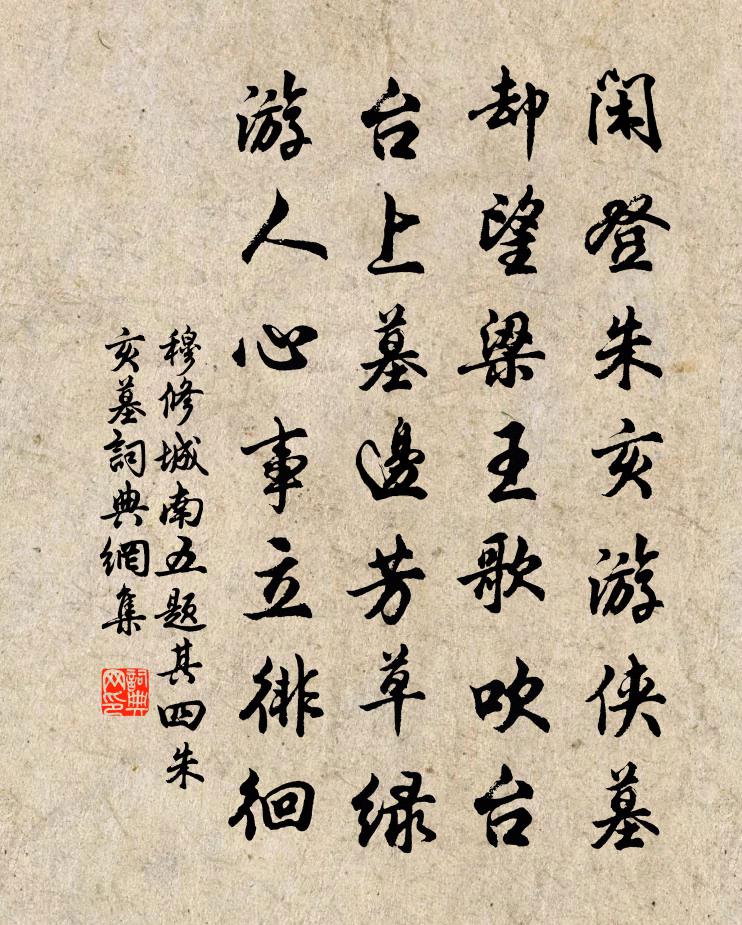 闲登朱亥游侠墓
却望梁王歌吹台
台上墓邊芳草绿
游人心事立徘徊
穆修城南五题其四朱
亥墓詞典網集
詞典
网印